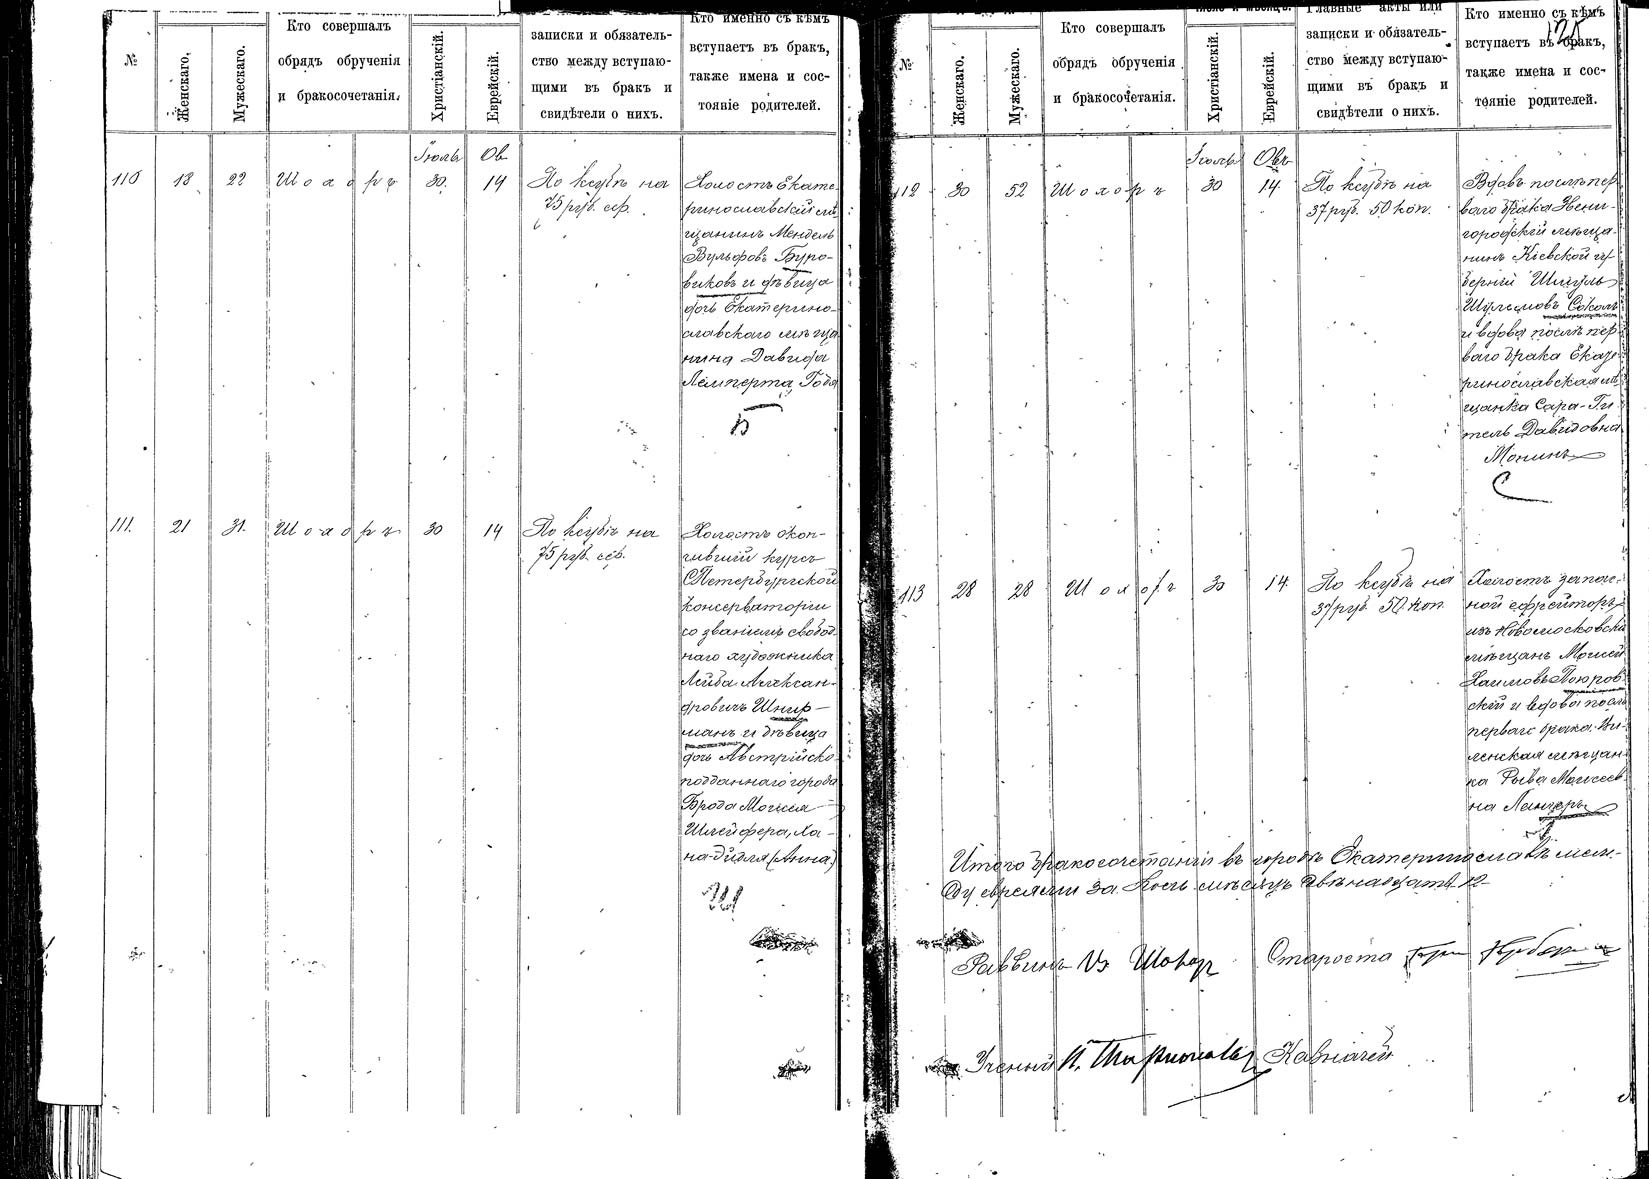 №
Женскаго,
Мужескаго.
Кто совершалъ
обрядъ обрученія
и бракосочетанія.
Христіанскій.
Еврейскій.
записки и обязатель-
ство между вступаю-
щими въ бракъ и
свидѣтели о нихъ.
Кто именно съ кѣмъ
вступаетъ въ бракъ,
также имена и сос-
тояніе родителей.
Іюль Ов
110 18 22 Шохоръ 30. 14 По ксубѣ на
75 руб. сер.
Холостъ Екате-
ринославскій мѣ
щанинъ Мендель
Вульфовъ Буро-
виковъ и дѣвица
дочь Екатерино-
славскаго мѣща
нина Давида
Лемперта Годя
Б
111. 21 31. Шохоръ 30 14 По ксубѣ на
75 руб. сер.
Холостъ окон-
чившій курсъ
СПетербургской
консерваторіи
со званіемъ свобод-
наго художника
Лейба Алексан-
дровичъ Шнир-
манъ и дѣвица
дочь Австрійско-
подданнаго города
Брода Моисея
Шлейфера, Ха-
на-Дидля (Анна)
Ш
125
№
Женскаго.
Мужескаго.
Кто совершалъ
обрядъ обрученія
и бракосочетанія.
число и мѣсяцъ.
Христіанскій.
Еврейскій.
Главные акты или
записки и обязатель-
ство между вступаю-
щими въ бракъ и
свидѣтели о нихъ.
Кто именно съ кѣмъ
вступаетъ въ бракъ,
также имена и сос-
тояніе родителей.
Іюль Овъ
112 30 52 Шохоръ 30 14. По ксубѣ на
37 руб. 50 коп.
Вдовъ послѣ пер
ваго брака Звени-
городскій мѣща-
нинъ Кіевской гу
берніи Шмуль
Шулимовъ Соколъ
и вдова послѣ пер
ваго брака Екате
ринославская мѣ
щанка Сара-Ги
тель Давидовна
Монинъ
С
113 28 28 Шохоръ 30 14. По ксубѣ на
37 руб. 50 коп.
Холостъ запас-
ной ефрейторъ
изъ Новомосковскихъ
мѣщанъ Моисей
Хаимовъ Покров
скій и вдова послѣ
перваго брака Ви-
ленская мѣщан-
ка Рыва Моисеев-
на Лангеръ
Итого бракосочетаній въ городѣ Екатеринославѣ меж-
ду евреями за Іюль мѣсяцъ двѣнадцать 12-
Раввинъ Шохор Староста
Ученый Казначей